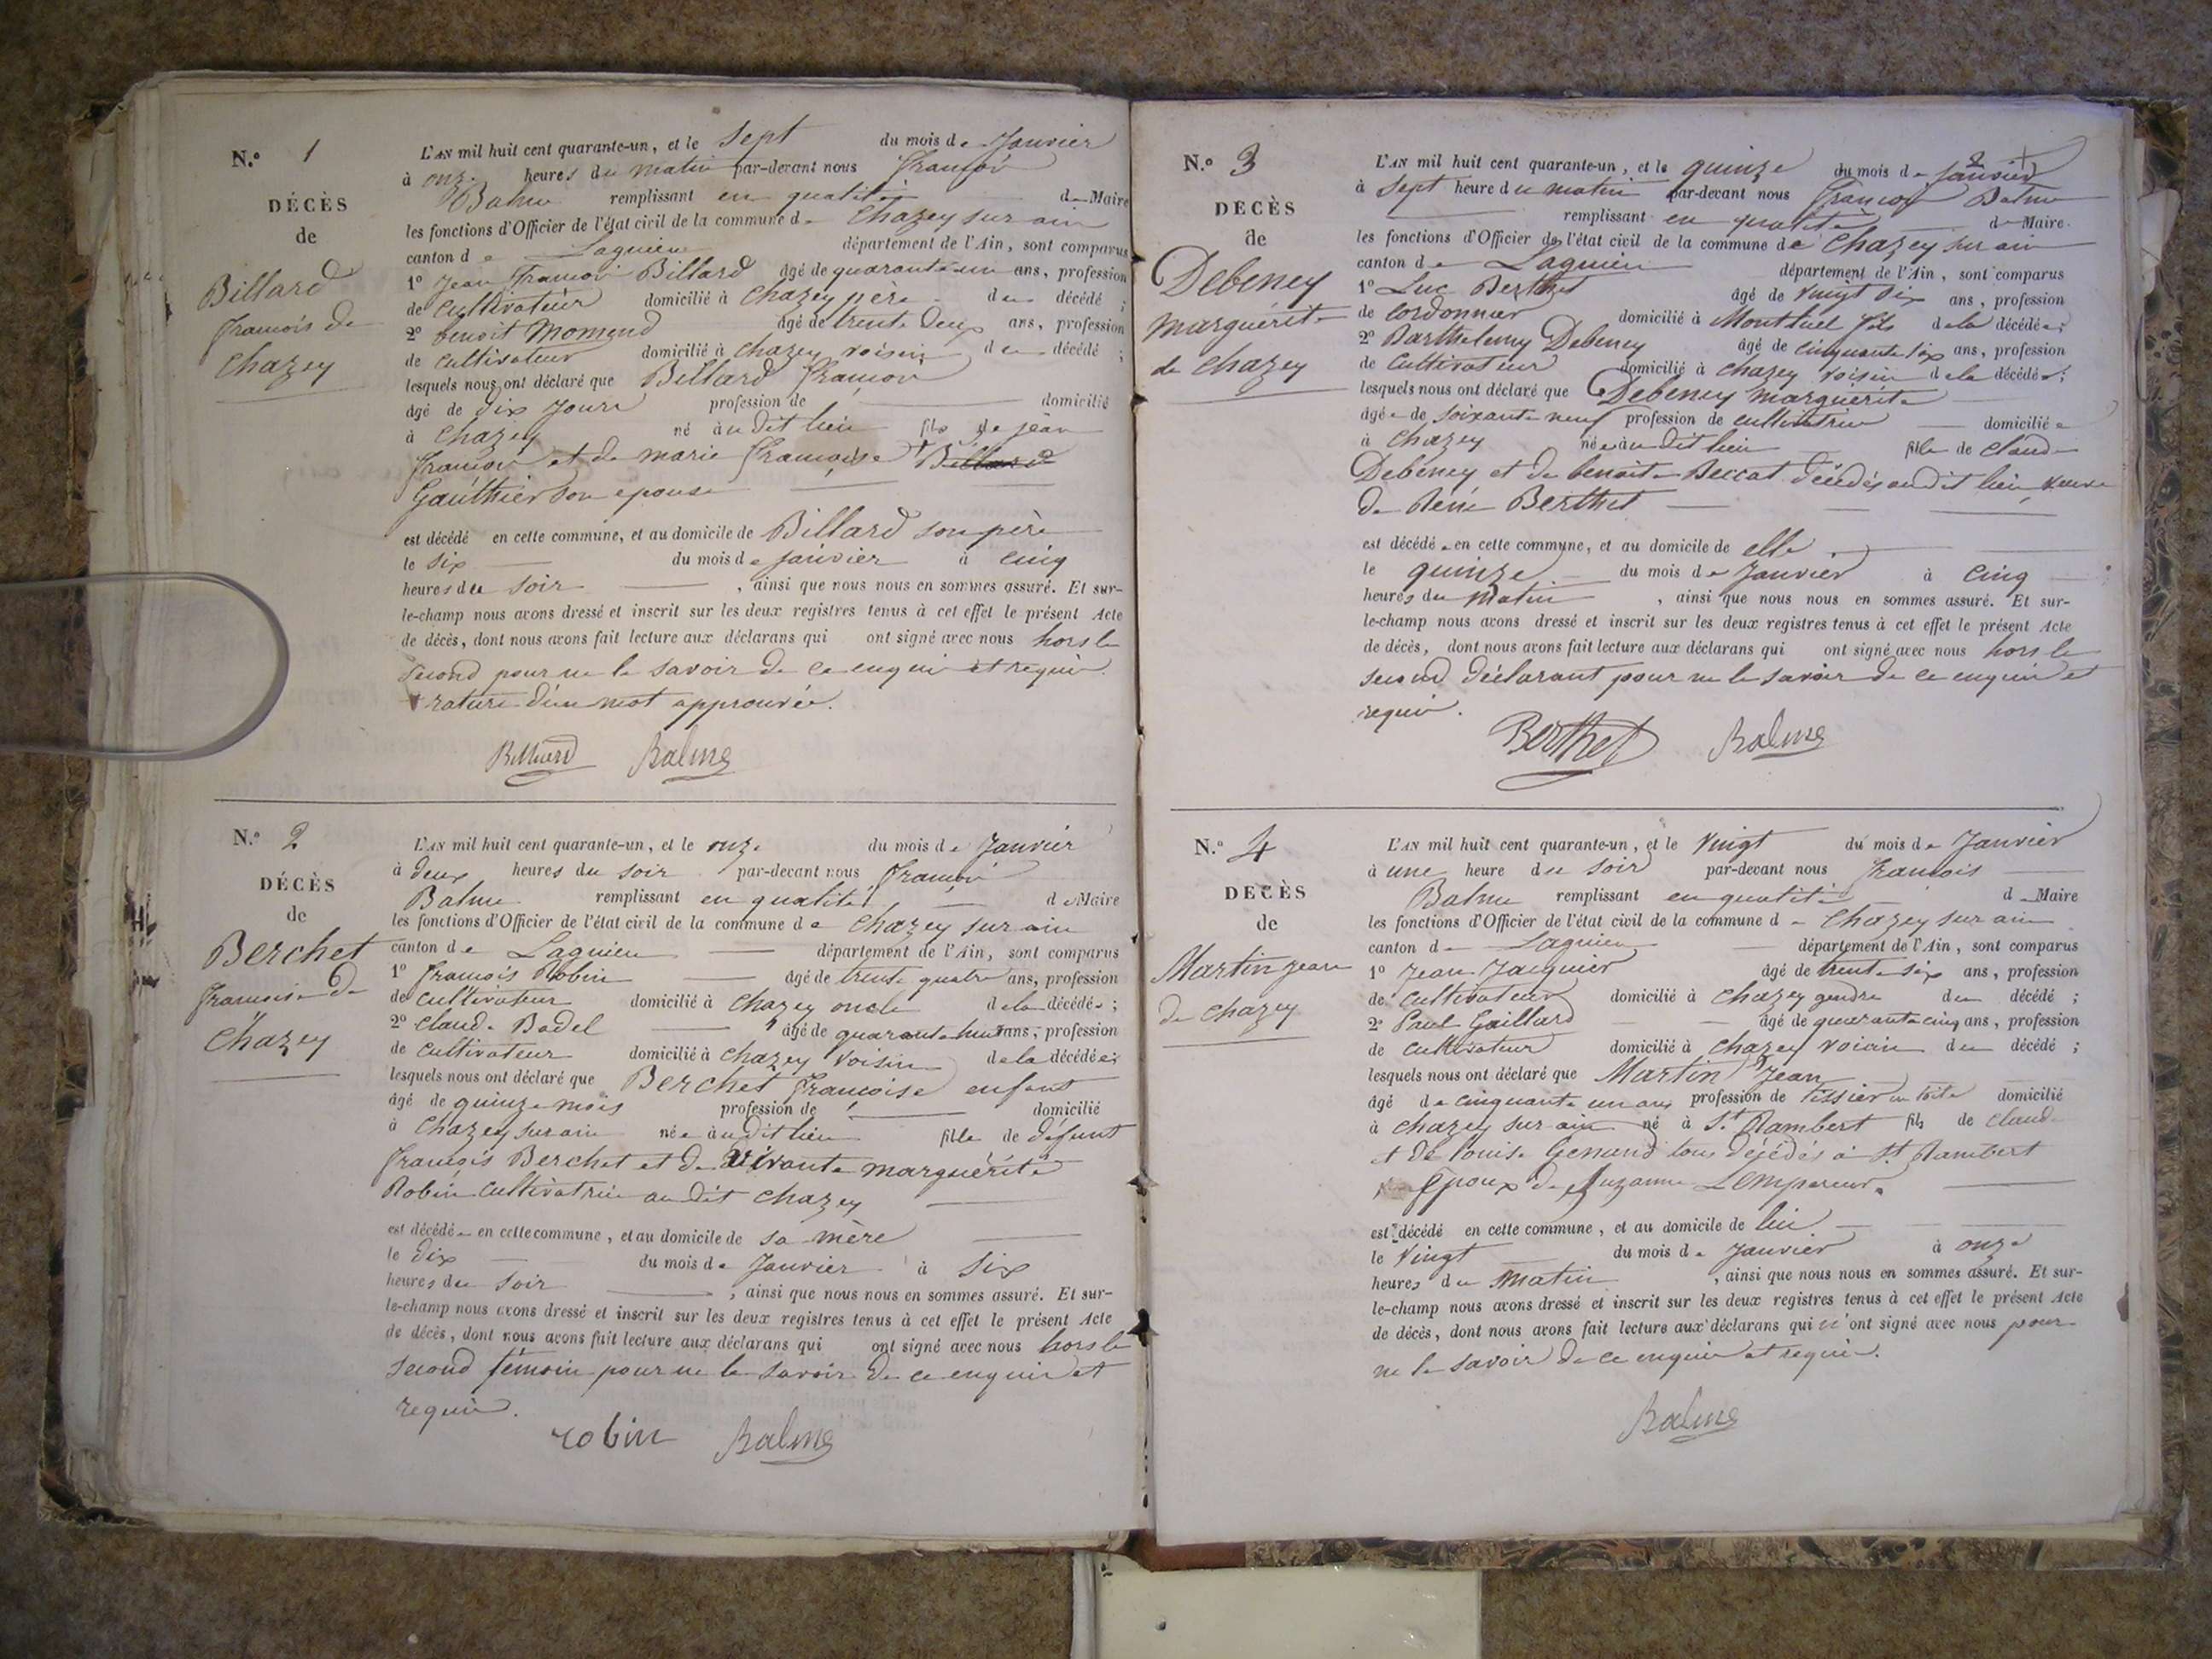 N.o 1
DÉCÈS
de
Billard
francois de
Chazey
L'AN mil huit cent quarante-un, et le sept du mois de Janvier
à onze heures du matin par-devant nous françois
Balme remplissant en qualité de Maire
les fonctions d'Officier de l'état civil de la commune de Chazey sur ain
canton de Lagnieu département de l'Ain, sont comparus
1o Jean françois Billard âgé de quarante un ans, profession
de cultivateur domicilié à Chazey père du décédé ;
2o benoit Momend âgé de trente deux ans, profession
de cultivateur domicilié à Chazey voisin du décédé ;
lesquels nous ont déclaré que Billard françois
âgé de dix jours profession de domicilié
à Chazey né audit lieu fils de jean
françois et de marie françoise Billard
Gauthier son epouse
est décédé en cette commune, et au domicile de Billard son père
le six du mois de janvier à cinq
heures du soir , ainsi que nous nous en sommes assuré. Et sur-
le-champ nous avons dressé et inscrit sur les deux registres tenus à cet effet le présent Acte
de décès, dont nous avons fait lecture aux déclarans qui ont signé avec nous hors le
second pour ne le savoir de ce enquis et requis.
rature d'un mot approuvée.
Billiard Balme
N.o 2
DÉCÈS
de
Berchet
francoise de
Chazey
L'AN mil huit cent quarante-un, et le onze du mois de Janvier
à deux heures du soir par-devant nous françois
Balme remplissant en qualité de Maire
les fonctions d'Officier de l'état civil de la commune de Chazey sur ain
canton de Lagnieu département de l'Ain, sont comparus
1o françois Robin âgé de trente quatre ans, profession
de cultivateur domicilié à Chazey oncle de la décédée ;
2o Claude Badel âgé de quarante huit ans, profession
de cultivateur domicilié à Chazey voisin de la décédée ;
lesquels nous ont déclaré que Berchet francoise enfant
âgé de quinze mois profession de domicilié
à Chazey sur ain née audit lieu fille de défunt
françois Berchet et de vivante marguérite
Robin cultivatrice au dit Chazey
est décédée en cette commune, et au domicile de sa mère
le dix du mois de Janvier à six
heures du soir , ainsi que nous nous en sommes assuré. Et sur-
le-champ nous avons dressé et inscrit sur les deux registres tenus à cet effet le présent Acte
de décès, dont nous avons fait lecture aux déclarans qui ont signé avec nous hors le
second témoin pour ne le savoir de ce enquis et
requis.
robin Balme
N.o 3
DECÈS
de
Debeney
marguerite
de chazey
L'AN mil huit cent quarante-un, et le quinze du mois de janvier
à sept heure du matin par-devant nous françois Balme
remplissant en qualité de Maire.
les fonctions d'Officier de l'état civil de la commune de Chazey sur ain
canton de Lagnieu département de l'Ain, sont comparus
1o Luc Berthet âgé de vingt six ans, profession
de cordonnier domicilié à Montluel fils de la décédée ;
2o Barthelemy Debeney âgé de cinquante six ans, profession
de cultivateur domicilié à chazey voisin de la décédée ;
lesquels nous ont déclaré que Debeney marguérite
âgée de soixante neuf profession de cultivatrice domiciliée
à Chazey née audit lieu fille de Claude
Debeney et de benoite Beccat décédés audit lieu veuve
de René Berthet
est décédée en cette commune, et au domicile de elle.
le quinze du mois de Janvier à cinq
heures du matin , ainsi que nous nous en sommes assuré. Et sur-
le-champ nous avons dressé et inscrit sur les deux registres tenus à cet effet le présent Acte
de décès, dont nous avons fait lecture aux déclarans qui ont signé avec nous hors le
second déclarant pour ne le savoir de ce enquis et
requis.
Berthet Balme
N.o 4
DECÈS
de
Martin jean
de chazey
L'AN mil huit cent quarante-un, et le vingt du mois de Janvier
à une heure du soir par-devant nous francois
Balme remplissant en qualité de Maire
les fonctions d'Officier de l'état civil de la commune de Chazey sur ain
canton de Lagnieu département de l'Ain, sont comparus
1o Jean Jacquier âgé de trente six ans, profession
de cultivateur domicilié à Chazey gendre du décédé ;
2o Paul Gaillard âgé de quarante cinq ans, profession
de cultivateur domicilié à Chazey voisin du décédé ;
lesquels nous ont déclaré que Martin Jean
âgé de cinquante un ans profession de tissier en toile domicilié
à chazey sur ain né à St. Rambert fils de Claude
et de louise Genand tous décédés à St. Rambert
Epoux de Suzanne Lempereur.
est décédé en cette commune, et au domicile de lui
le vingt du mois de Janvier à onze
heures du matin , ainsi que nous nous en sommes assuré. Et sur-
le-champ nous avons dressé et inscrit sur les deux registres tenus à cet effet le présent Acte
de décès, dont nous avons fait lecture aux déclarans qui n'ont signé avec nous pour
ne le savoir de ce enquis et requis.
Balme